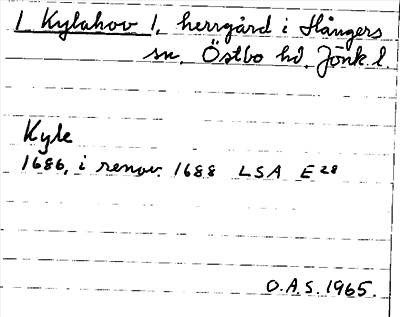 [ Kylahov ], herrgård i Hångers
sn, Östbo hd, Jönk. l.
Kyle
1686, i renov. 1688 LSA E 28
O.A.S. 1965.